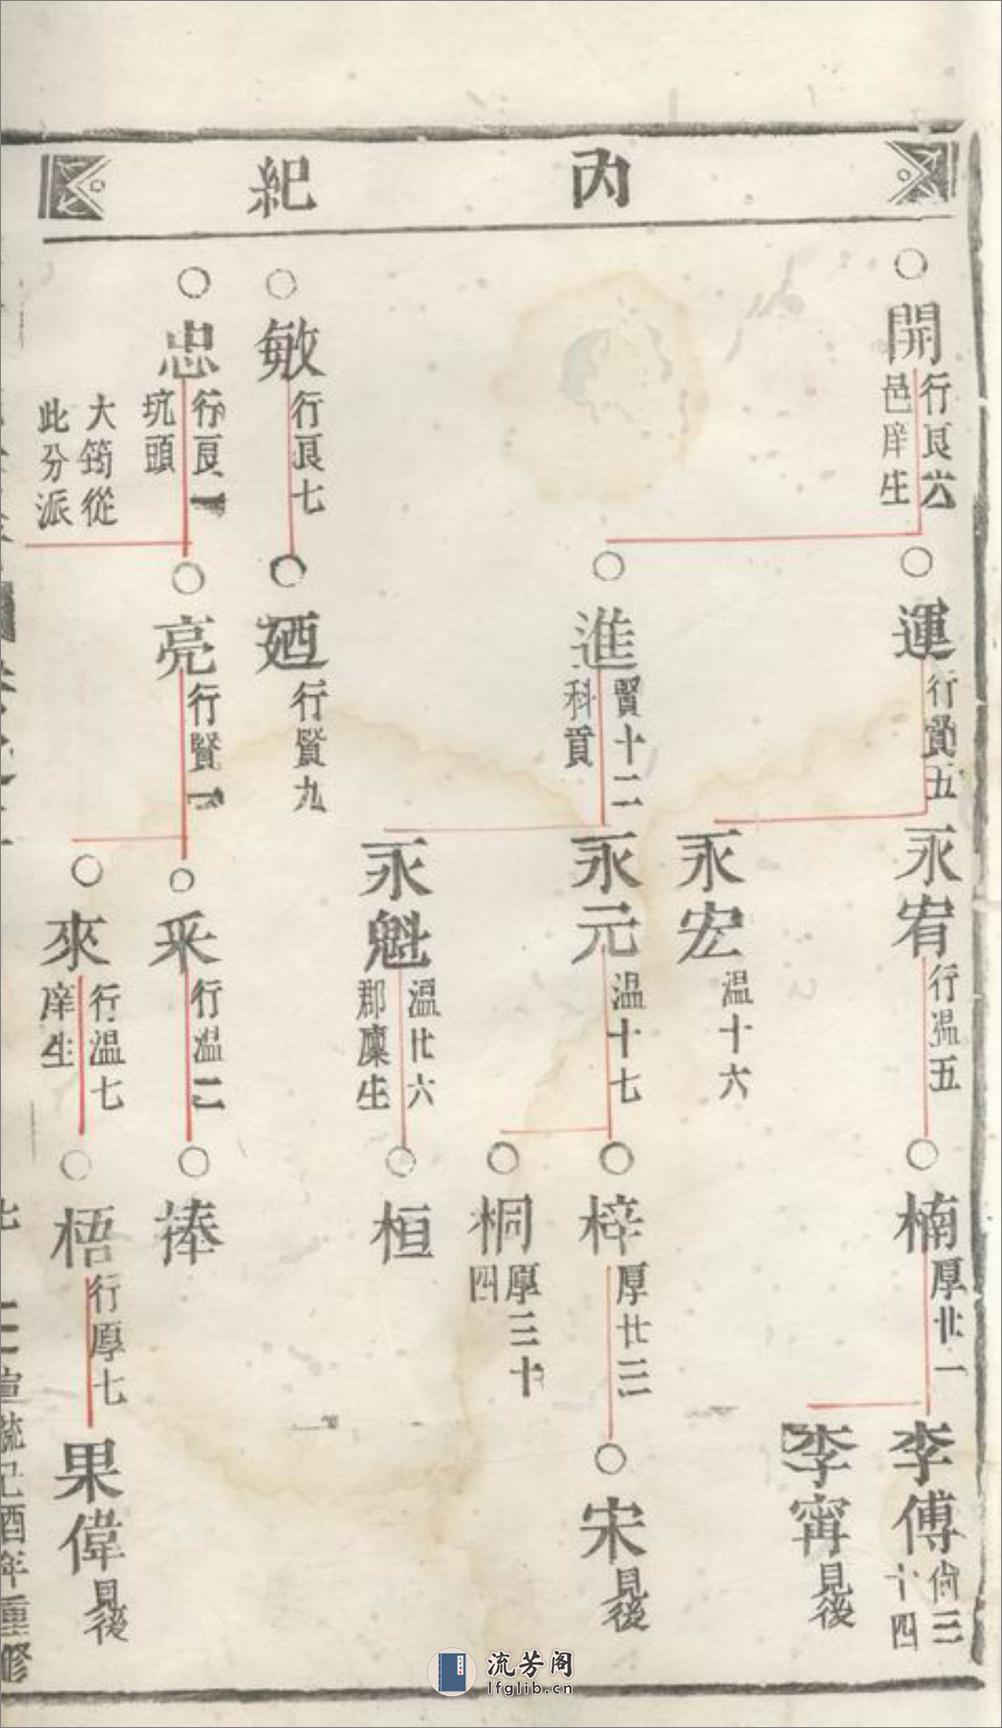 內紀
開
行良六
邑庠生
敏
行良七
忠
行良一
坑頭
大筠從
此分派
運
行賢五
進
賢十二
科貢
廼
行賢九
亮
行賢一
永宥
行溫五
永宏
溫十六
永元
溫十七
永魁
溫廿六
郡廩生
采
行溫二
來
行溫七
庠生
楠
厚廿一
梓
厚廿三
桐
厚三十
四
桓
捧
梧
行厚七
李傅
尙三
十四
李甯
見後
宋
見後
果偉
見後
宣統己酉年重修
流芳阁
lfglib.cn